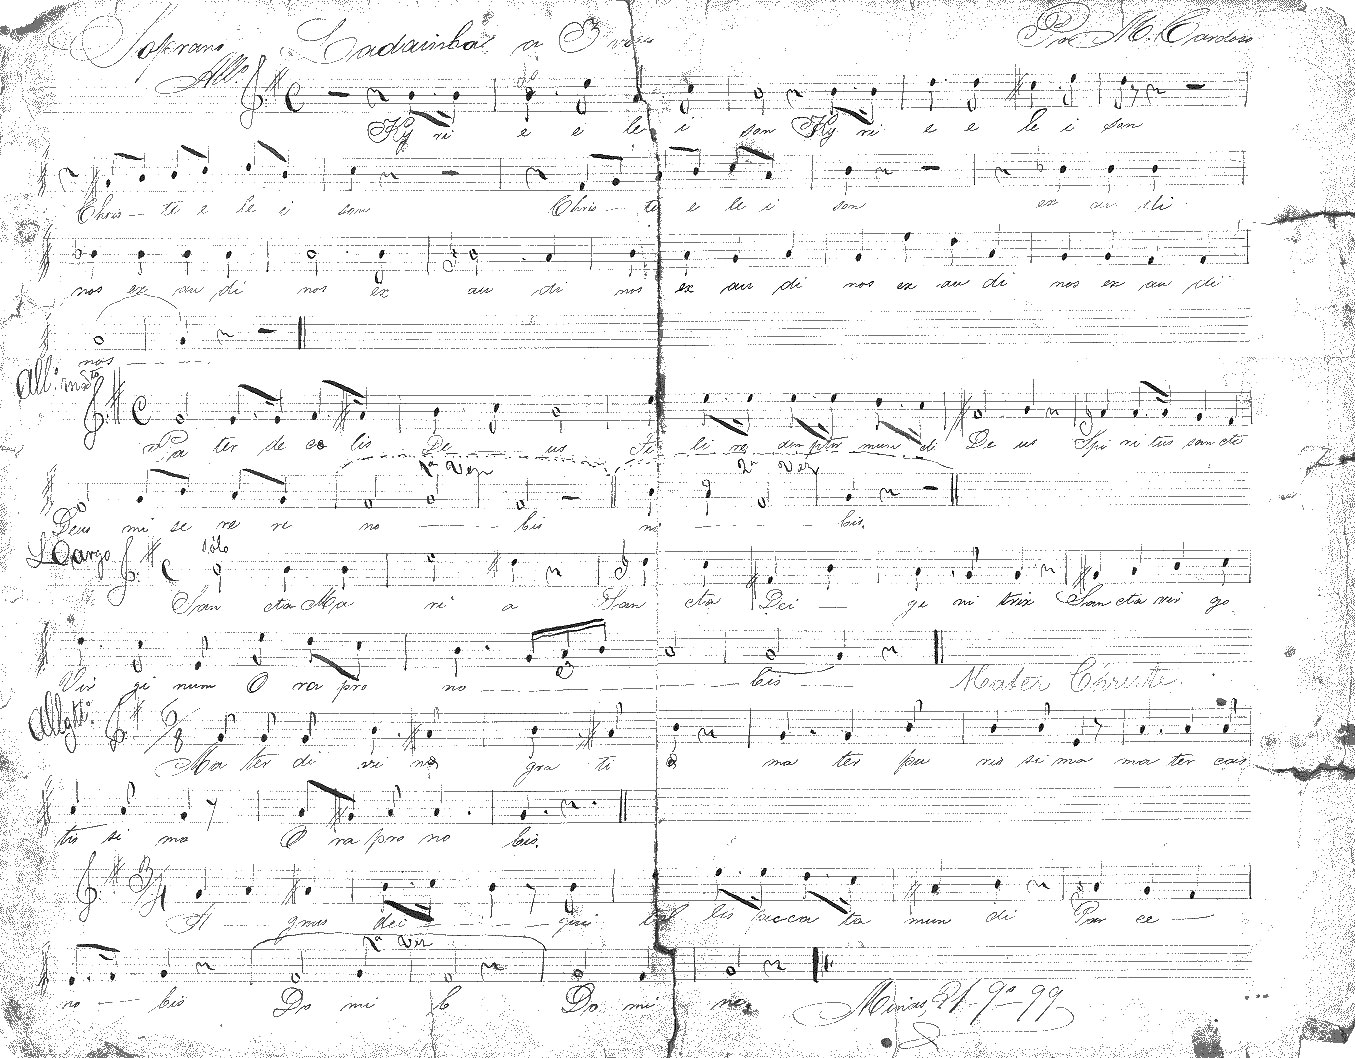 Soprano Ladainha a 3 vozes Por M. Cardoso
Allo
Ky ri e e le i son Ky ri e e le i son
Chris - te e le i son Chris - te e le i son ex au di
nos ex au di nos ex au di nos ex au di nos ex au di nos ex au di
nos
All: mto
Pa ter de cœ lis De us fi li re demptor mun di De us Spi ri tus sancte
1ª Vez 2ª Vez
Deus mi se re re no - bis no - bis.
Largo solo
San cta Ma ri a San cta Dei - ge ni trix San cta vir go
Vir gi num O ra pro no - bis - Mater Christe.
Allgtto:
Ma ter di vi næ gra ti æ ma ter pu ris si ma ma ter cas
tis si ma O ra pro no bis.
A gnus dei - qui tol lis pecca ta mun di Par ce -
1ª Vez
no - bis Do mi ne Do mi ne.
Minas, 21-9º-99